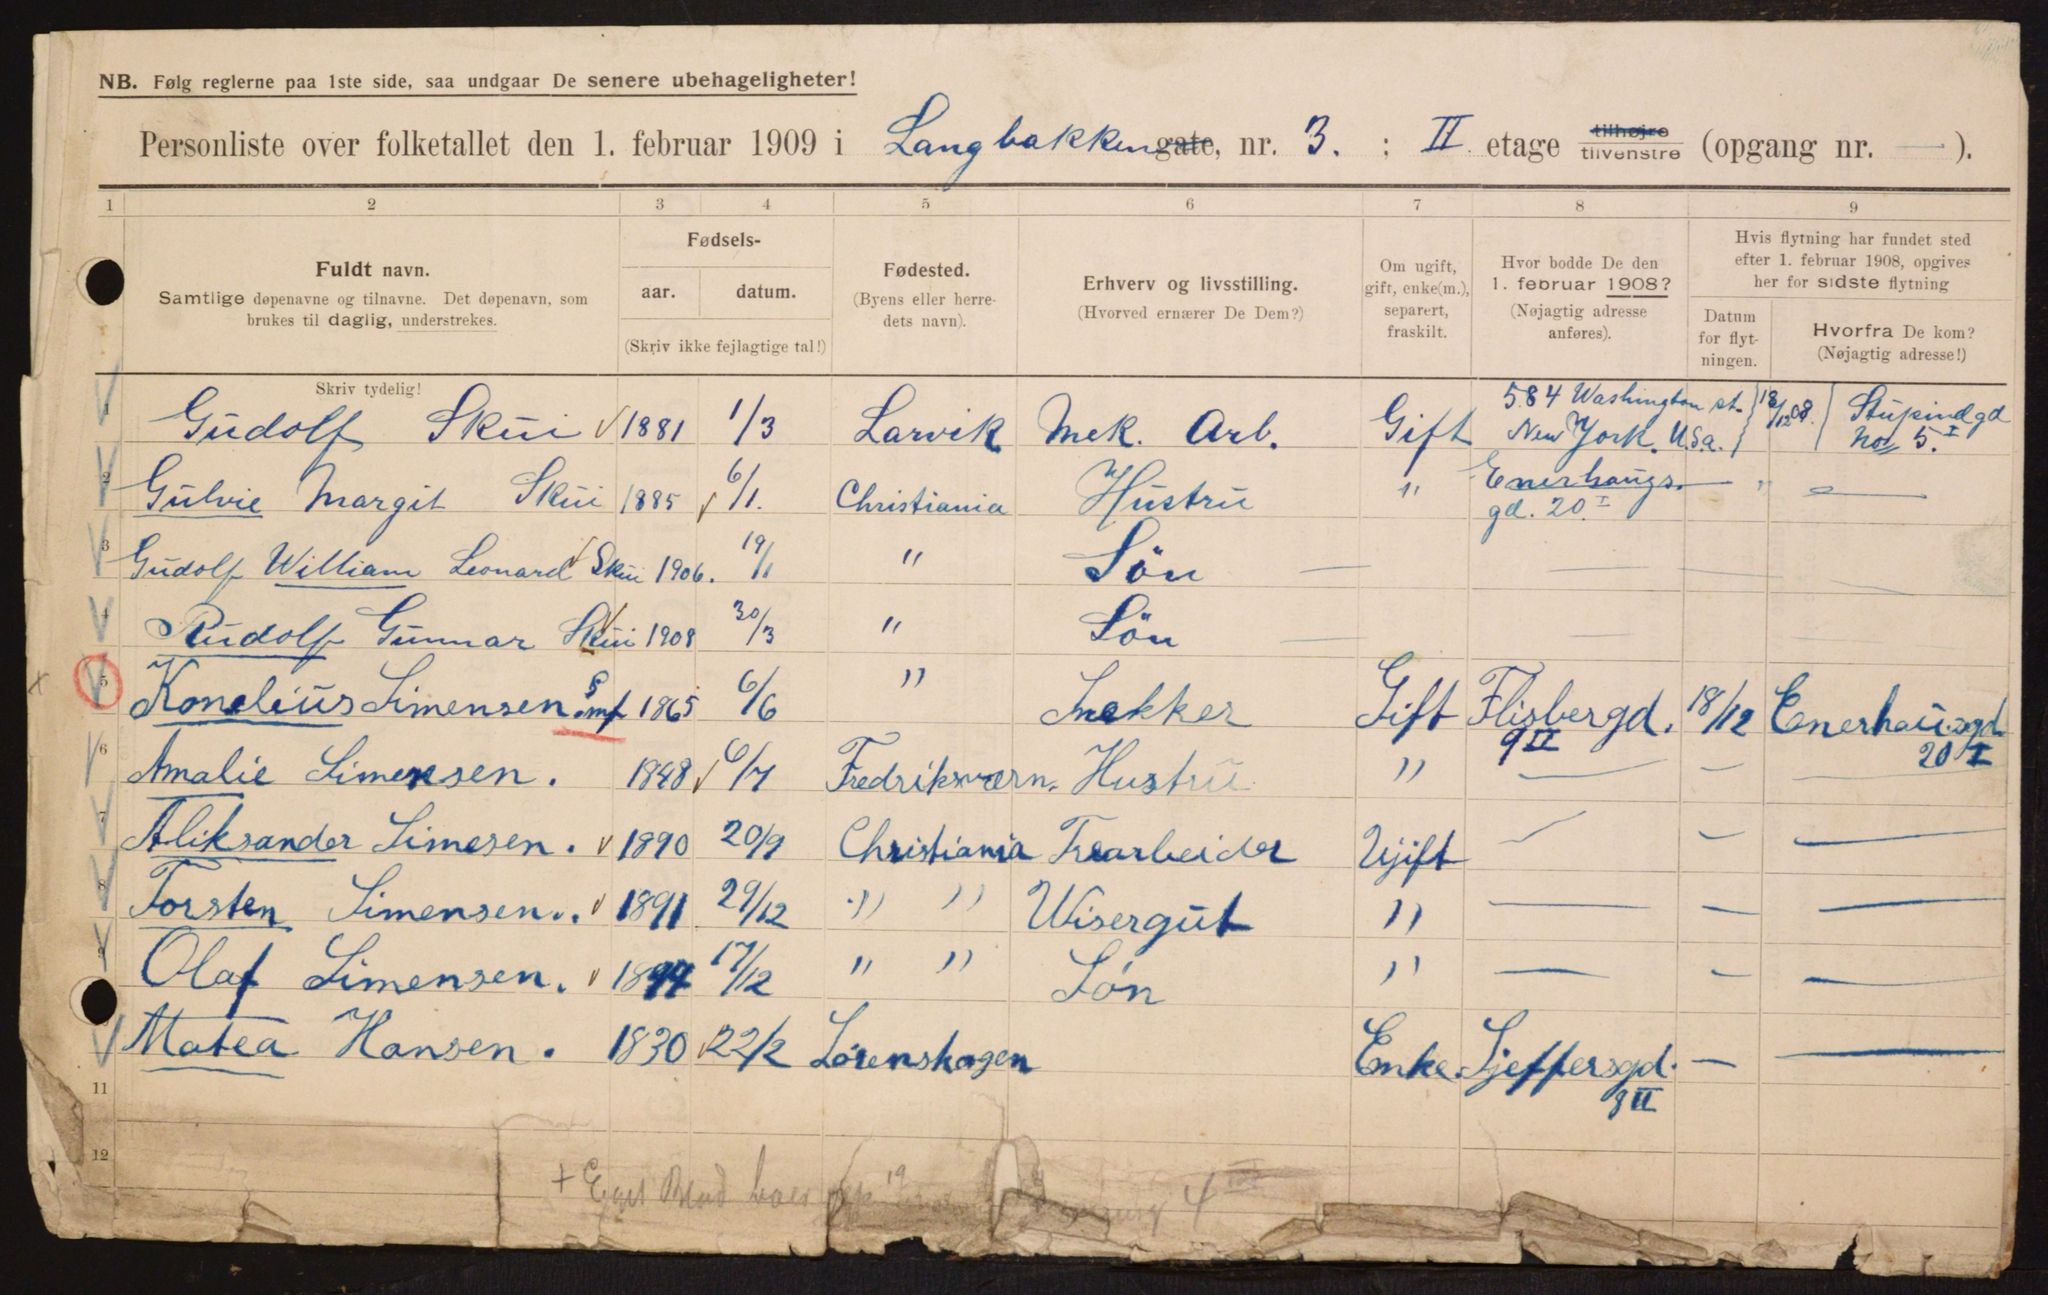 NB. Følg reglerne paa 1ste side, saa undgaar De senere ubehageligheter!
Personliste over folketallet den 1. februar 1909 i Langbakkengate, nr. 3. : II etage tilhøjre tilvenstre (opgang nr. — ).
1 2 3 4 5 6 7 8 9
Fuldt navn.
Samtlige døpenavne og tilnavne. Det døpenavn, som
brukes til daglig, understrekes.
Skriv tydelig!
Fødsels-
aar. datum.
(Skriv ikke fejlagtige tal!)
Fødested.
(Byens eller herre-
dets navn).
Erhverv og livsstilling.
(Hvorved ernærer De Dem?)
Om ugift,
gift, enke(m.),
separert,
fraskilt.
Hvor bodde De den
1. februar 1908?
(Nøjagtig adresse
anføres).
Hvis flytning har fundet sted
efter 1. februar 1908, opgives
her for sidste flytning
Datum
for flyt-
ningen.
Hvorfra De kom?
(Nøjagtig adresse!)
1 Gudolf Skui 1881 1/3 Larvik Mek. Arb. Gift 584 Washington st. New York. U.S.a. 18/12 08. Stupindgd No 5 I.
2 Gulvie Margit Skui 1885 6/1. Christiania Hustru " Enerhaugs. gd. 20. I — " —
3 Gudolf William Leonard Skui 1906. 19/1 " Sön — — — —
4 Rudolf Gunnar Skui 1908 30/3 " Sön — — — —
5 Konelius Simensen 1865 6/6 " Snekker Gift Flisbergd. 9 II 18/12 Enerhaugsgd 20 I
6 Amalie Simensen. 1848 6/7 Fredriksværn. Hustru " — — —
7 Aliksander Simesen. 1890 20/9 Christiania Trearbeider Ugift — — —
8 Torsten Simensen. 1891 29/12 " " Wisergut " — — —
9 Olaf Simensen. 17/12 " " Søn " — — —
Matea Hansen. 1830 22/2 Lørenskogen Enke. Sjeffersgd. 8 II — —
11
12
+ Eget Blad